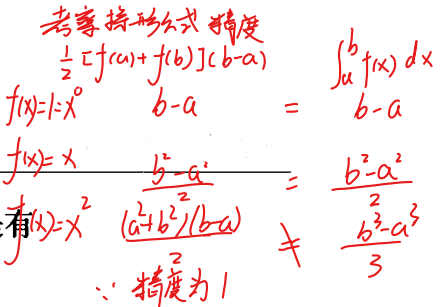 考察梯形公式 精度
½[f(a)+f(b)](b-a)  ∫ₐᵇ f(x) dx
f(x)=1=x⁰  b-a = b-a
f(x)=x  (b²-a²)/2 = (b²-a²)/2
有 f(x)=x²  (a²+b²)(b-a)/2 ≠ (b³-a³)/3
∵ 精度为1